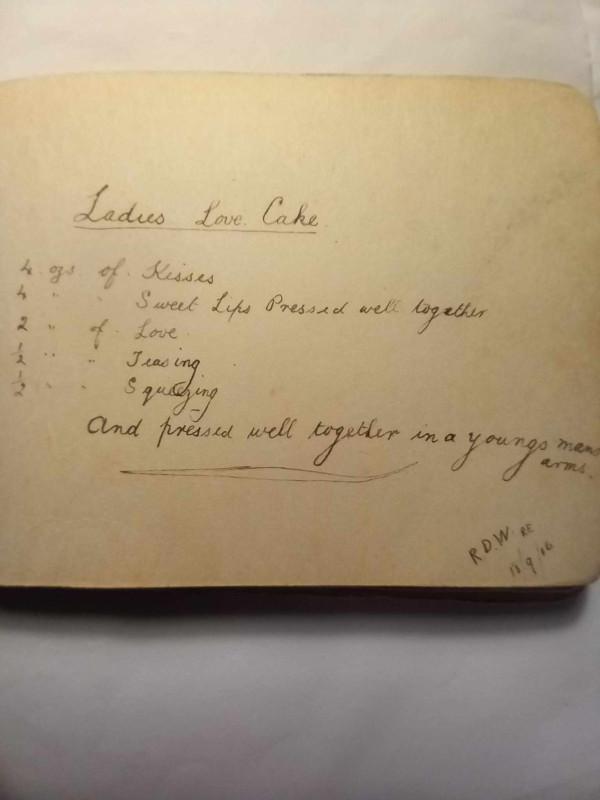 Ladies Love Cake
4 ozs of Kisses
4 " " Sweet Lips Pressed well together
2 " of Love
½ " " Teasing
½ " " Squeezing
And pressed well together in a youngs mans
arms.
R.D.W. RE
11/9/16